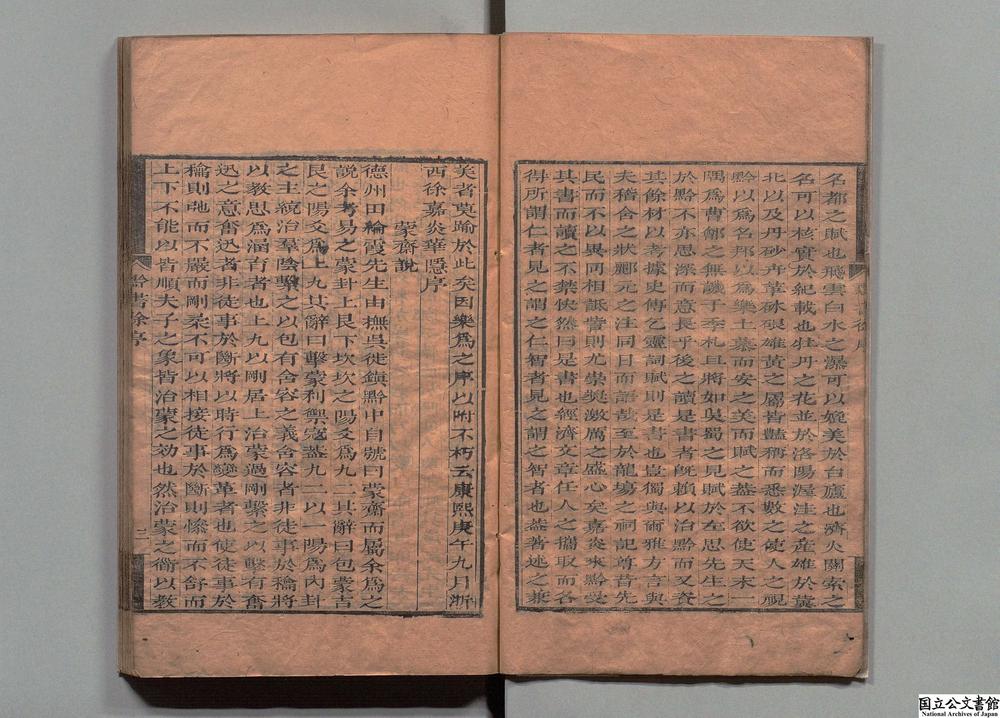 名都之賦也飛雲白水之瀑可以媲美於台廬也濟火關索之
名可以核實於紀載也牡丹之花並於洛陽渥洼之產雄於冀
北以及丹砂卉草砅硍雄黃之屬皆豔稱而悉數之使人之視
黔以爲名邦以爲樂土慕而安之美而賦之葢不欲使天末一
隅爲曹鄶之無譏于季札且將如吳蜀之見賦於左思先生之
於黔不亦思深而意長乎後之讀是書者旣賴以治黔而又資
其餘材以考據史傳乞靈詞賦則是書也豈獨與爾雅方言與
夫稽含之狀酈元之注同日而語哉至於龍塲之祠記尊昔先
民而不以異同相詆訾則尤崇奬激厲之盛心矣嘉炎來黔受
其書而讀之不禁怏然曰是書也經濟文章任人之攜取而各
得所謂仁者見之謂之仁智者見之謂之智者也葢著述之最
美者莫踰於此矣因樂爲之序以附不朽云康熙庚午九月浙
西徐嘉炎華隱序
蒙齋說
德州田綸霞先生由撫吳徙鎮黔中自號曰蒙齋而屬余爲之
說余考易之蒙卦上艮下坎坎之陽爻爲九二其辭曰包蒙吉
艮之陽爻爲上九其辭曰擊蒙利禦寇葢九二以一陽爲內卦
之主統治羣陰繫之以包有含容之義含容者非徒事於穐將
以敎思爲涵育者也上九以剛居上治蒙過剛繫之以擊有奮
迅之意奮迅者非徒事於斷將以時行爲變革者也使徒事於
穐則弛而不嚴而剛柔不可以相接徒事於斷則慘而不舒而
上下不能以皆順夫子之象皆治蒙之効也然治蒙之術以敎
黔書徐序
二
黔書徐序
国立公文書館
National Archives of Japan